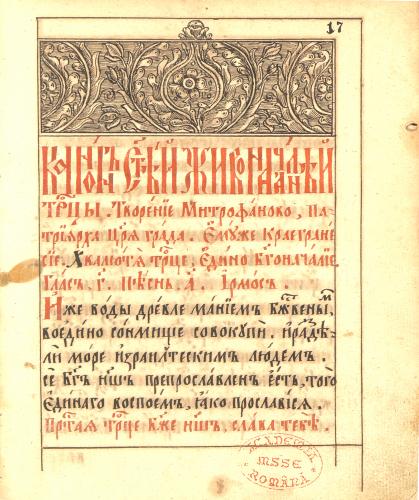 17
Канѡнъ ст҃ѣй живоначалнѣй
трⷪ҇цы. Творенїе Митрофаново, па-
трїарха Цр҃яграда. Емуже краегране-
сїе. Хвалю тѧ трⷪ҇це, едино бг҃оначалїе
Гласъ, г҃. Пѣснь. а҃. Ірмосъ.
Иже воды древле манїемъ бжⷭ҇твенымъ
воедино сонмище совокупи. и раздѣ-
ли море израилтескимъ людемъ.
се бг҃ъ нш҃ъ препрославленъ есть, того
единаго воспоемъ, ꙗко прославися.
Прⷭ҇тая трⷪ҇це бж҃е нш҃ъ, слава тебѣ.
ACADEMIA
MSSE
ROMÂNĂ